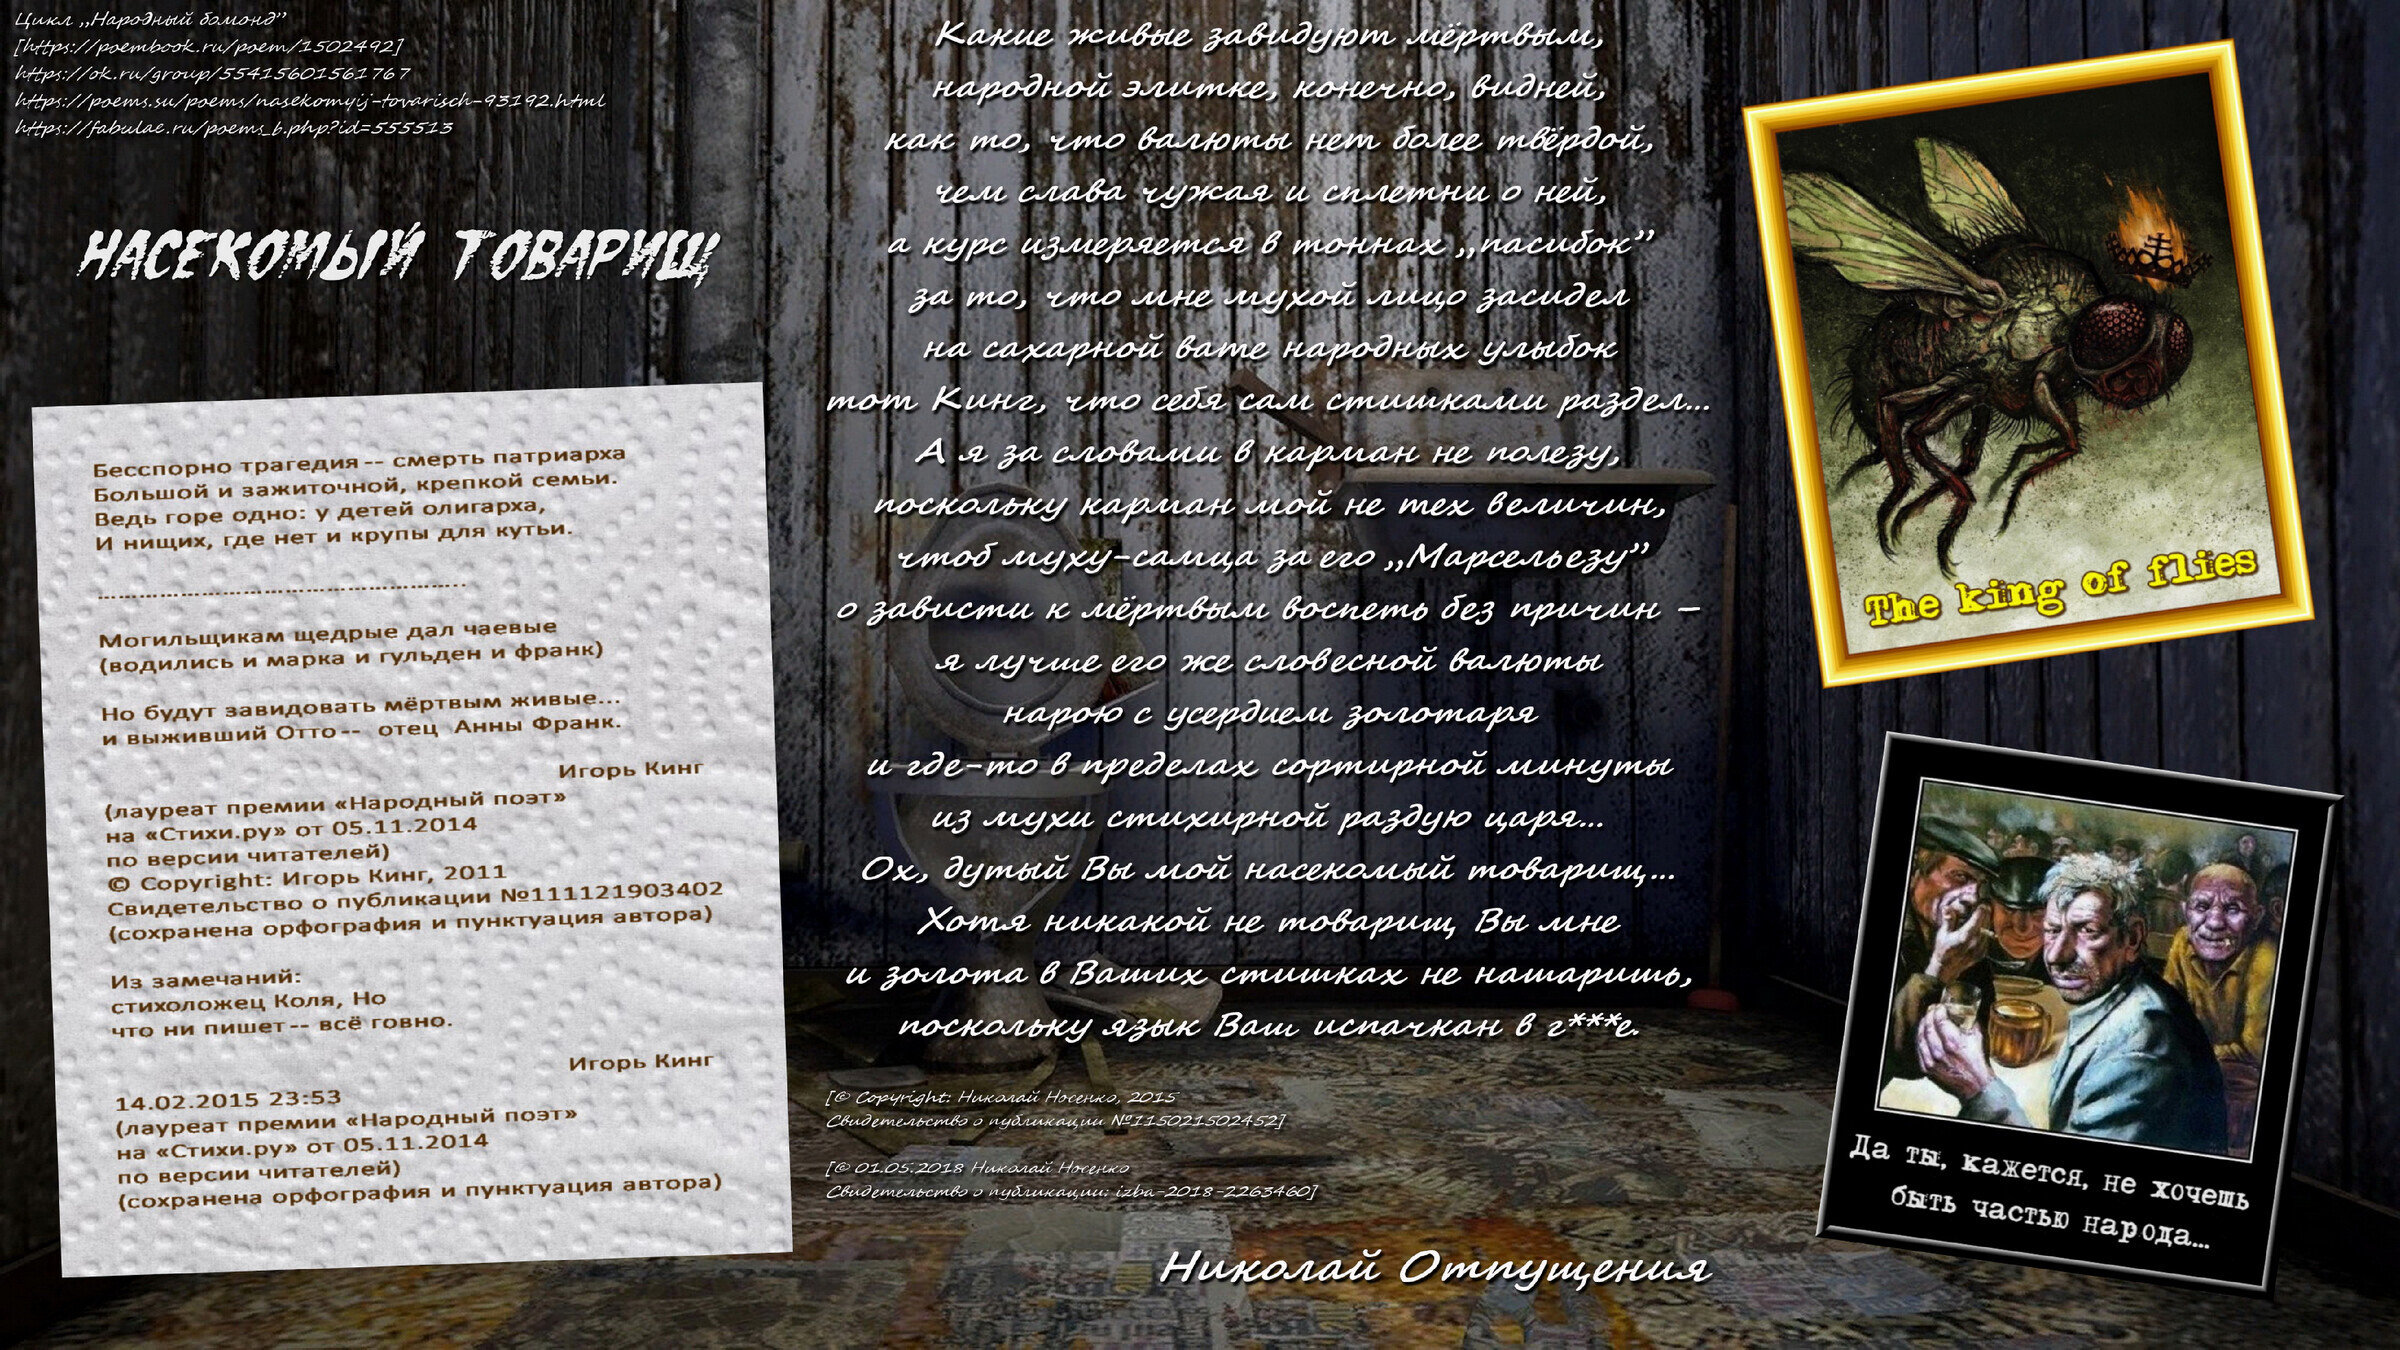 Цикл „Народный бомонд”
[https://poembook.ru/poem/1502492]
https://ok.ru/group/55415601561767
https://poems.su/poems/nasekomyij-tovarisch-93192.html
https://fabulae.ru/poems_b.php?id=555513
НАСЕКОМЫЙ ТОВАРИЩ
Бесспорно трагедия -- смерть патриарха
Большой и зажиточной, крепкой семьи.
Ведь горе одно: у детей олигарха,
И нищих, где нет и крупы для кутьи.
................................................
Могильщикам щедрые дал чаевые
(водились и марка и гульден и франк)
Но будут завидовать мёртвым живые...
и выживший Отто -- отец Анны Франк.
Игорь Кинг
(лауреат премии «Народный поэт»
на «Стихи.ру» от 05.11.2014
по версии читателей)
© Copyright: Игорь Кинг, 2011
Свидетельство о публикации №111121903402
(сохранена орфография и пунктуация автора)
Из замечаний:
стихоложец Коля, Но
что ни пишет -- всё говно.
Игорь Кинг
14.02.2015 23:53
(лауреат премии «Народный поэт»
на «Стихи.ру» от 05.11.2014
по версии читателей)
(сохранена орфография и пунктуация автора)
Какие живые завидуют мёртвым,
народной элитке, конечно, видней,
как то, что валюты нет более твёрдой,
чем слава чужая и сплетни о ней,
а курс измеряется в тоннах „пасибок”
за то, что мне мухой лицо засидел
на сахарной вате народных улыбок
тот Кинг, что себя сам стишками раздел...
А я за словами в карман не полезу,
поскольку карман мой не тех величин,
чтоб муху-самца за его „Марсельезу”
о зависти к мёртвым воспеть без причин –
я лучше его же словесной валюты
нарою с усердием золотаря
и где-то в пределах сортирной минуты
из мухи стихирной раздую царя...
Ох, дутый Вы мой насекомый товарищ...
Хотя никакой не товарищ Вы мне
и золота в Ваших стишках не нашаришь,
поскольку язык Ваш испачкан в г***е.
[© Copyright: Николай Носенко, 2015
Свидетельство о публикации №115021502452]
[© 01.05.2018 Николай Носенко
Свидетельство о публикации: izba-2018-2263460]
Николай Отпущения
The king of flies
Да ты, кажется, не хочешь
быть частью народа...